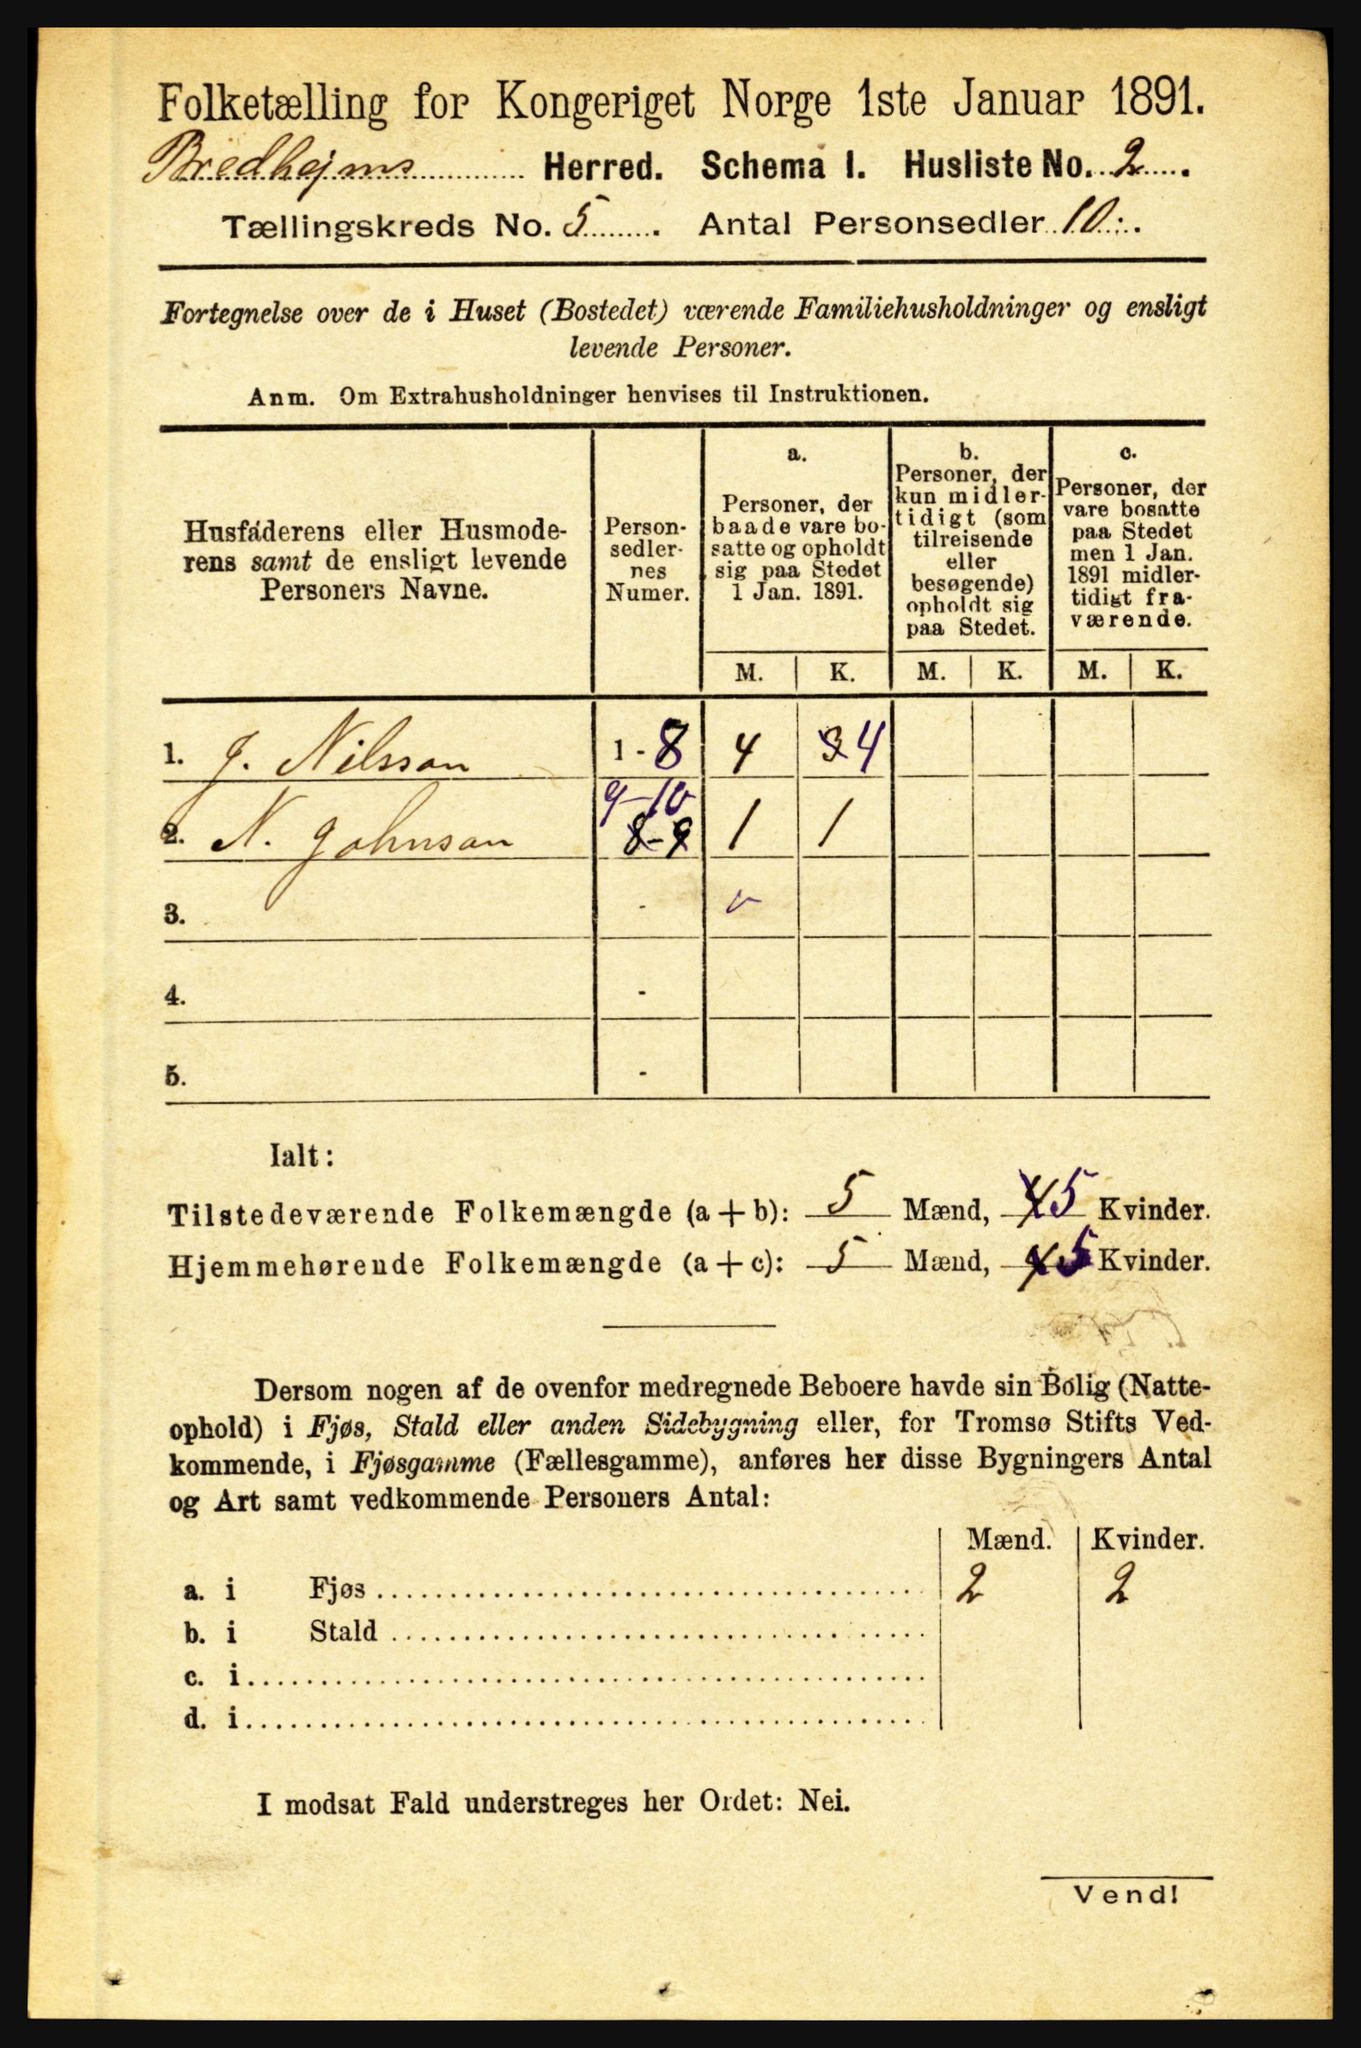 Folketælling for Kongeriget Norge 1ste Januar 1891.
Bredhejms Herred. Schema I. Husliste No. 2.
Tællingskreds No. 5. Antal Personsedler 10.
Fortegnelse over de i Huset (Bostedet) værende Familiehusholdninger og ensligt
levende Personer.
Anm. Om Extrahusholdninger henvises til Instruktionen.
Husfáderens eller Husmode-
rens samt de ensligt levende
Personers Navne.
Person-
sedler-
nes
Numer.
a.
Personer, der
baade vare bo-
satte og opholdt
sig paa Stedet
1 Jan. 1891.
b.
Personer, der
kun midler-
tidigt (som
tilreisende
eller
besøgende)
opholdt sig
paa Stedet.
c.
Personer, der
vare bosatte
paa Stedet
men 1 Jan.
1891 midler-
tidigt fra-
værende.
M. K. M. K. M. K.
1. J. Nilsson 1 - 8 4 3 4
9-10
2. N. Johnson 8-9 1 1
3. -
4. -
5. -
Ialt:
Tilstedeværende Folkemængde (a + b): 5 Mænd, 4 5 Kvinder.
Hjemmehørende Folkemængde (a + c): 5 Mænd, 4 5 Kvinder.
Dersom nogen af de ovenfor medregnede Beboere havde sin Bolig (Natte-
ophold) i Fjøs, Stald eller anden Sidebygning eller, for Tromsø Stifts Ved-
kommende, i Fjøsgamme (Fællesgamme), anføres her disse Bygningers Antal
og Art samt vedkommende Personers Antal:
Mænd. Kvinder.
a. i Fjøs 2 2
b. i Stald
c. i
d. i
I modsat Fald understreges her Ordet: Nei.
Vend!